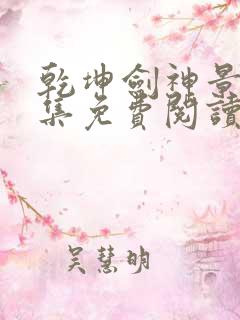 乾坤劍神景
集免費閱讀
吴慧明